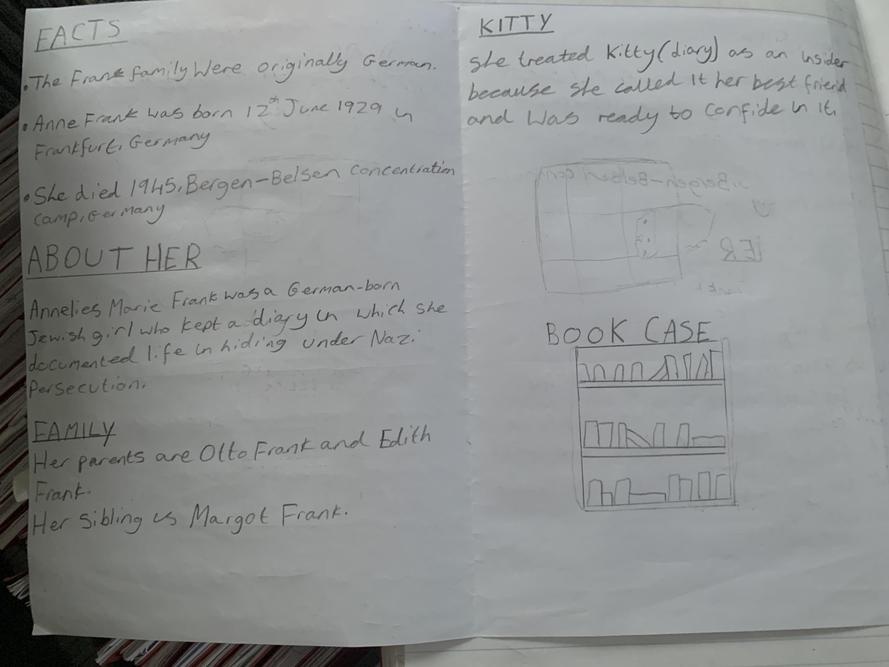 FACTS
• The Frank family Were originally German.
• Anne Frank was born 12th June 1929 in
Frankfurt, Germany
• She died 1945, Bergen-Belsen Concentration
Camp, Germany
ABOUT HER
Annelies Marie Frank was a German-born
Jewish girl who kept a diary in which she
documented life in hiding under Nazi
Persecution.
FAMILY
Her parents are Otto Frank and Edith
Frank.
Her Sibling is Margot Frank.
KITTY
She treated Kitty (diary) as an insider
because she called it her best friend
and Was ready to confide in it.
BOOK CASE